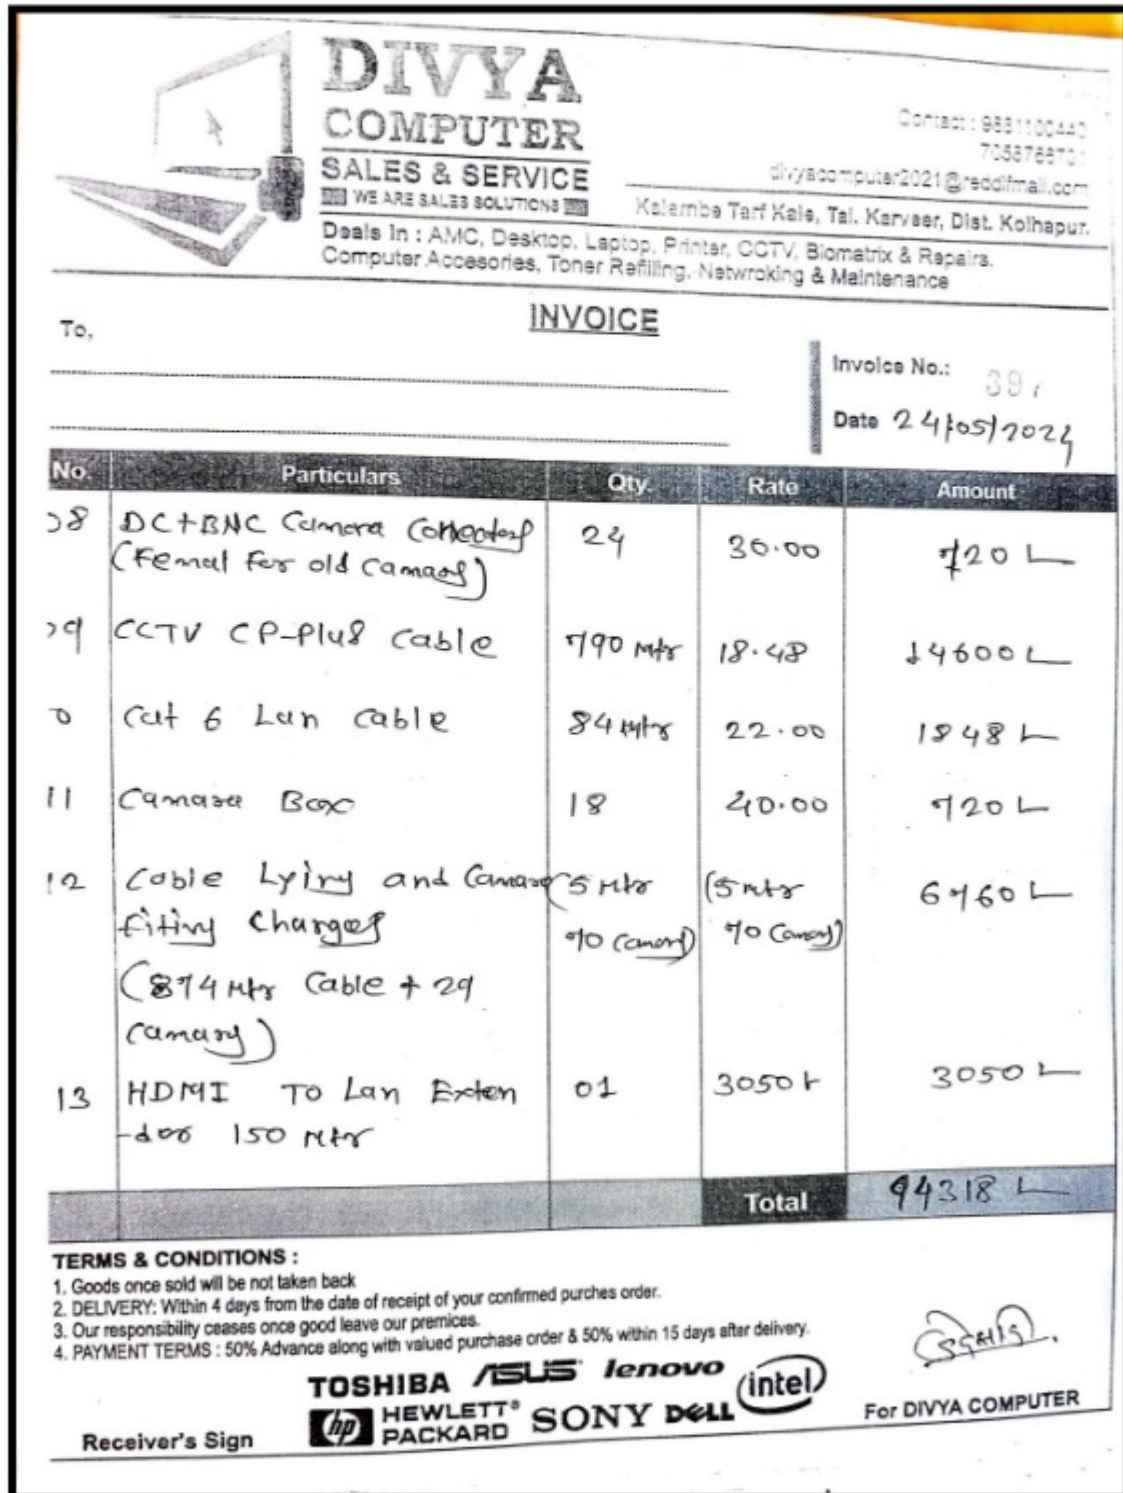 DIVYA
COMPUTER
SALES & SERVICE
WE ARE SALES SOLUTIONS
Contact : 9881100440
divyacomputer2021@rediffmail.com
Kalambe Tarf Kale, Tal. Karveer, Dist. Kolhapur.
Deals In : AMC, Desktop, Laptop, Printer, CCTV, Biomatrix & Repairs.
Computer Accesories, Toner Refilling, Netwroking & Maintenance
INVOICE
To,
Invoice No.:
Date 24/05/2024
No. Particulars Qty. Rate Amount
08 DC+BNC Camera Conectors 24 30.00 720/-
(Femal For old Camaras)
09 CCTV CP-Plus Cable 790 Mtr 18.48 14600/-
0 Cat 6 Lan Cable 84 Mtr 22.00 1848/-
11 Camara Box 18 40.00 720/-
12 Cable Lying and Camara (5 Mtr (5 mtr 6760/-
fiting Charges 70 Camara) 70 Camara)
(874 Mtr Cable + 29
Camara)
13 HDMI To Lan Exten 01 3050/- 3050/-
-dor 150 Mtr
Total 94318/-
TERMS & CONDITIONS :
1. Goods once sold will be not taken back
2. DELIVERY: Within 4 days from the date of receipt of your confirmed purches order.
3. Our responsibility ceases once good leave our premices.
4. PAYMENT TERMS : 50% Advance along with valued purchase order & 50% within 15 days after delivery.
TOSHIBA ASUS lenovo intel
hp HEWLETT® PACKARD SONY DELL
Receiver's Sign
For DIVYA COMPUTER